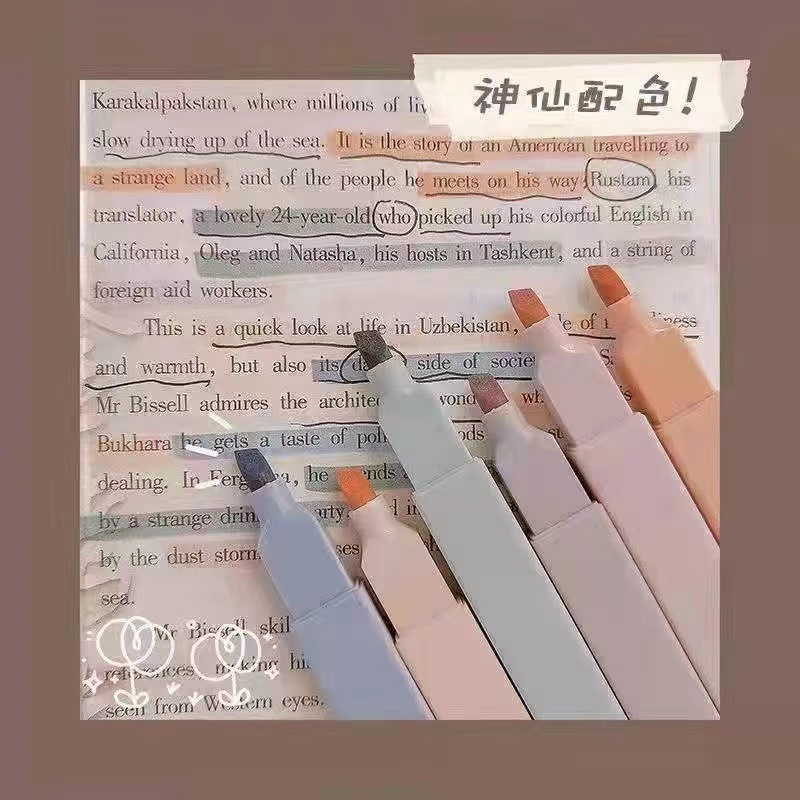 神仙配色!
Karakalpakstan, where millions of
slow drying up of the sea. It is the story of an American travelling to
a strange land, and of the people he meets on his way: Rustam, his
translator, a lovely 24-year-old who picked up his colorful English in
California, Oleg and Natasha, his hosts in Tashkent, and a string of
foreign aid workers.
This is a quick look at life in Uzbekistan, of
and warmth, but also its side of
Mr Bissell admires the
Bukhara he gets a taste of
dealing. In he
by a strange
by the dust
sea.
Mr Bissell
references, making
seen from Western eyes.